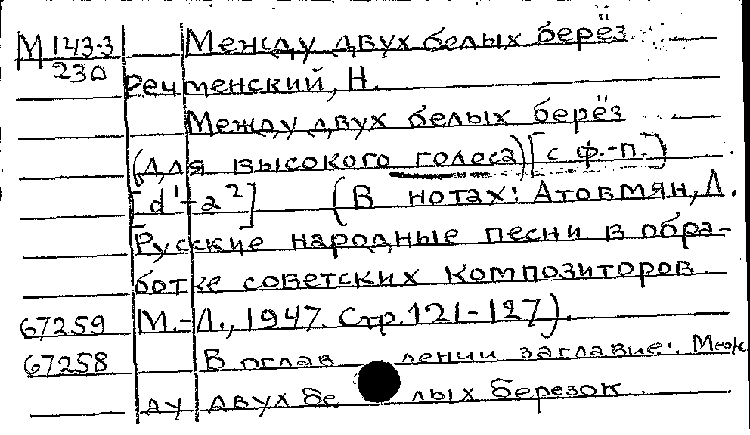 М 143-3 Между двух белых берёз
230
Речменский, Н.
Между двух белых берёз
(для высокого голоса) [с ф.-п.]
[d¹-a²] (В нотах: Атовмян, Л.
Русские народные песни в обра-
ботке советских композиторов
67259 М.-Л., 1947. Стр. 121-127).
67258 В оглавлении заглавие: Меж
ду двух белых березок